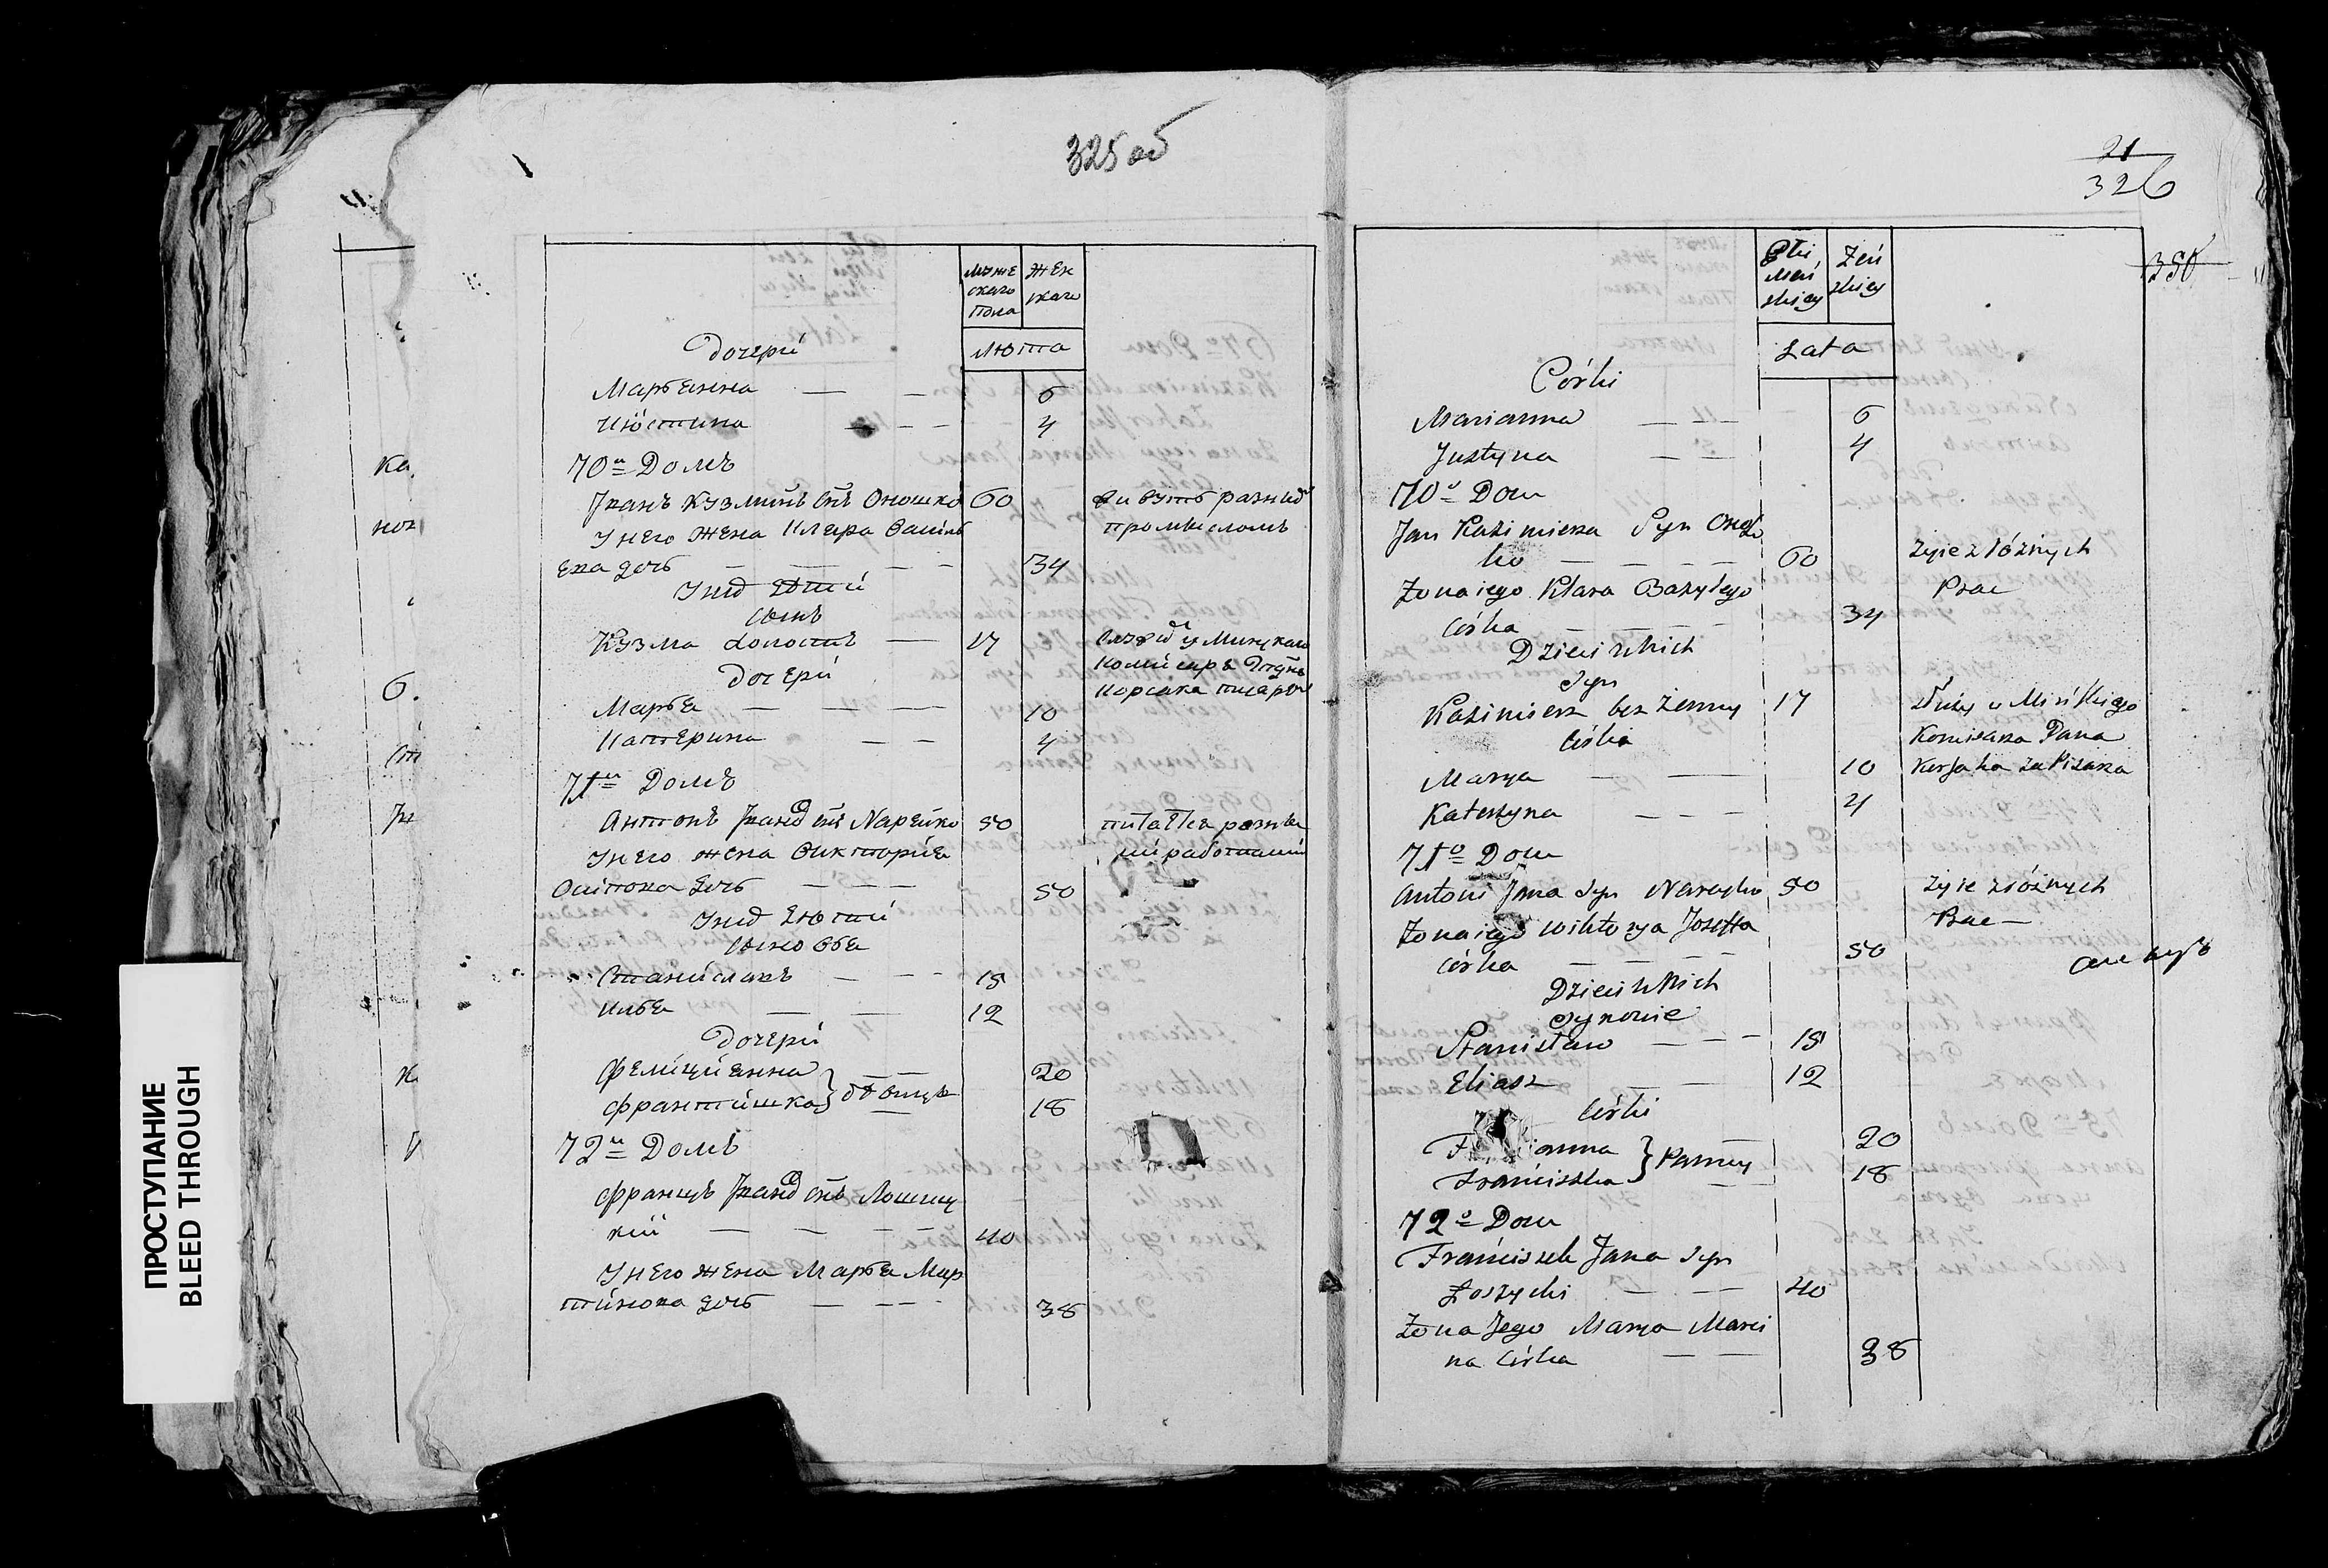 325 об
Мужескаго пола
Женскаго
Люта
Дочери
Марьянна — — 6
Июстина — — 4
70й Домъ
Иванъ Кузминъ снъ Оношко 60
У него жена Клара
дочь — — 34
У них дети
сынъ
Кузма холостъ — 17
Дочери
Марья — — 10
Катерина — — 4
71й Домъ
Антонъ Ивановъ снъ Нарейко 50
У него жена Викторiя
Осипова дочь — — 50
У них дети
сыновья
Станиславъ — — 15
Илья — — 12
Дочери
Фелицiянна — 20
Франтишка } девицы — 18
72й Домъ
Францъ Ивановъ снъ Лошиц
кий — — 40
У него жена Марья Мар
тинова дочь — — 38
живутъ
промысломъ
служит у Минскаго
Корсака писаромъ
питается разны
ми работами
21
326
350
Płci Męskiey
Żeńskiey
Lata
Córki
Marianna — — 6
Justyna — — 4
70o Dom
Jan Kazimierza Syn Onosz
ko — — 60
Żona iego Klara Bazylego
córka — — 34
Dzieci u Nich
Syn
Kazimierz bez żenny 17
córka
Marya — — 10
Katerzyna — — 4
71o Dom
Antoni Jana Syn Nareyko 50
Żona iego Wiktorya Josefa
córka — — 50
Dzieci u Nich
Synowie
Stanisław — — 15
Eliasz — — 12
córki
F anna 20
Franciszka } Panny — 18
72o Dom
Franciszek Jana Syn
Łoszycki — — 40
Żona Jego Marya Marci
na Córka — — 38
żyie z różnych
Prac
służy u Mińskiego
Komisarza Pana
Korsaka za Pisarza
żyie z różnych
Prac —
ка
нок
б.
ст
к
ПРОСТУПАНИЕ
BLEED THROUGH